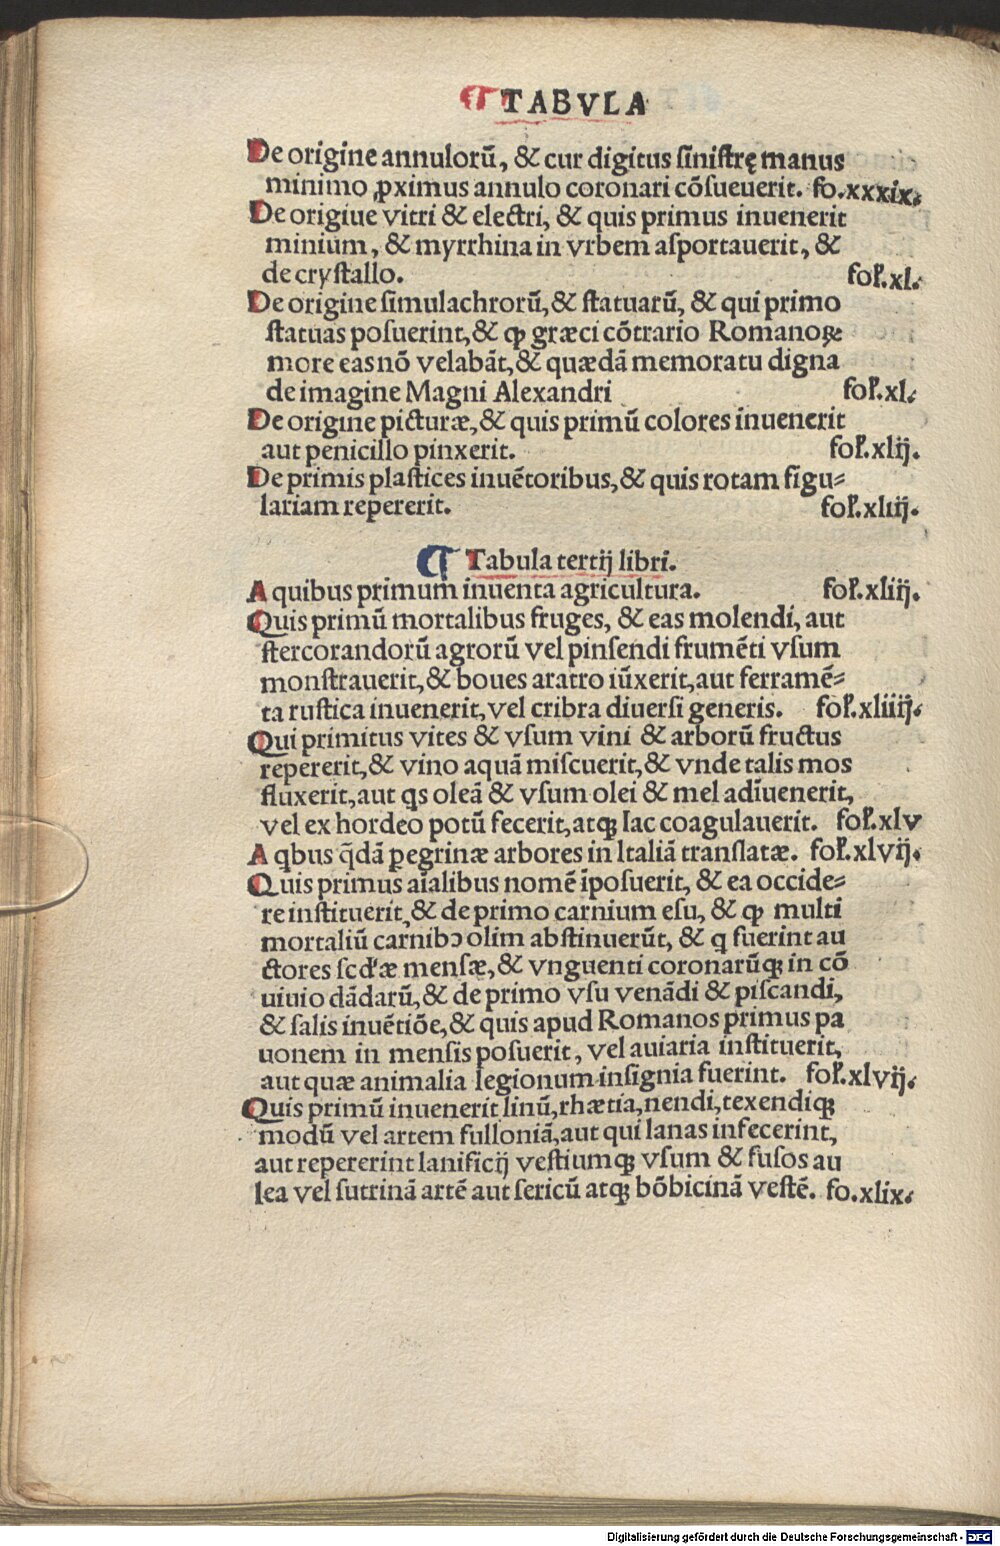 ¶ TABVLA
De origine annulorū, & cur digitus ſiniſtrę manus
minimo ꝓximus annulo coronari cōſueuerit. fo.xxxix.
De origiue vitri & electri, & quis primus inuenerit
minium, & myrrhina in vrbem aſportauerit, &
de cryſtallo. fol̕.xl.
De origine ſimulachrorū,& ſtatuarū, & qui primo
ſtatuas poſuerint,& ꝙ græci cōtrario Romanoꝝ
more eas nō velabāt,& quædā memoratu digna
de imagine Magni Alexandri fol̕.xl.
De origine picturæ,& quis primū colores inuenerit
aut penicillo pinxerit. fol̕.xlij.
De primis plaſtices inuētoribus,& quis rotam figu⸗
lariam repererit. fol̕.xliij.
¶ Tabula tertij libri.
A quibus primum inuenta agricultura. fol̕.xliij.
Quis primū mortalibus fruges, & eas molendi, aut
ſtercorandorū agrorū vel pinſendi frumēti vſum
monſtrauerit,& boues aratro iūxerit,aut ferramē⸗
ta ruſtica inuenerit,vel cribra diuerſi generis. fol̕.xliiij.
Qui primitus vites & vſum vini & arborū fructus
repererit,& vino aquā miſcuerit,& vnde talis mos
fluxerit,aut qs oleā & vſum olei & mel adīuenerit,
vel ex hordeo potū fecerit,atqꝫ lac coagulauerit. fol̕.xlv
A qbus q̄dā ꝑegrinæ arbores in Italiā tranſlatæ. fol̕.xlvij.
Quis primus aīalibus nomē īpoſuerit, & ea occide⸗
re inſtituerit,& de primo carnium eſu, & ꝙ multi
mortaliū carnibꝰ olim abſtinuerūt, & q fuerint au
ctores ſcd̕æ menſæ,& vnguenti coronarūqꝫ in cō
uiuio dādarū,& de primo vſu venādi & piſcandi,
& ſalis inuētiōe,& quis apud Romanos primus pa
uonem in menſis poſuerit, vel auiaria inſtituerit,
aut quæ animalia legionum inſignia fuerint. fol̕.xlvij.
Quis primū inuenerit linū,rhætia,nendi,texendiqꝫ
modū vel artem fulloniā,aut qui lanas infecerint,
aut repererint lanificij veſtiumqꝫ vſum & fuſos au
lea vel ſutrinā artē aut ſericū atqꝫ bōbicinā veſtē. fo.xlix.
Digitalisierung gefördert durch die Deutsche Forschungsgemeinschaft - DFG